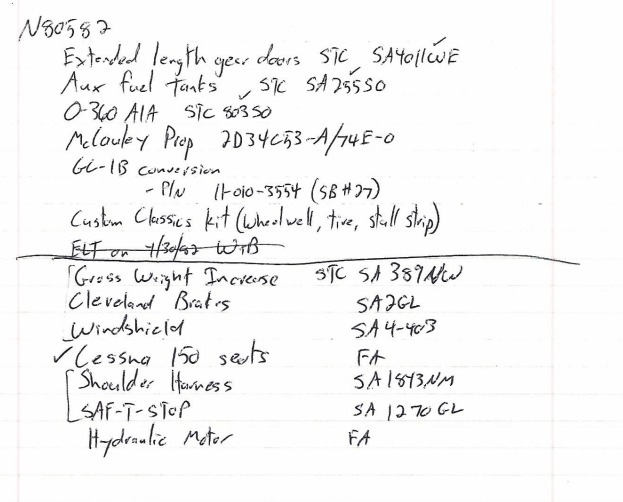 N80582
Extended length gear doors STC SA4011WE
Aux fuel tanks ✓ STC SA255SO
O-360 A1A STC 803SO
McCauley Prop 2D34C53-A/74E-0
GC-1B conversion
- P/N 11-010-3554 (SB #27)
Custom Classics kit (Wheelwell, tire, stall strip)
ELT on 4/30/02 W+B
Gross Weight Increase STC SA389NW
Cleveland Brakes SA2GL
Windshield SA4-403
✓ Cessna 150 seats FA
Shoulder Harness SA1843NM
SAF-T-STOP SA1270GL
Hydraulic Motor FA